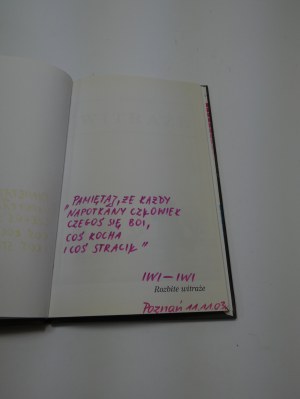 „PAMIĘTAJ, ŻE KAŻDY
NAPOTKANY CZŁOWIEK
CZEGOŚ SIĘ BOI,
COŚ KOCHA
I COŚ STRACIŁ"
IWI – IWI
Rozbite witraże
Poznań 11.11.03